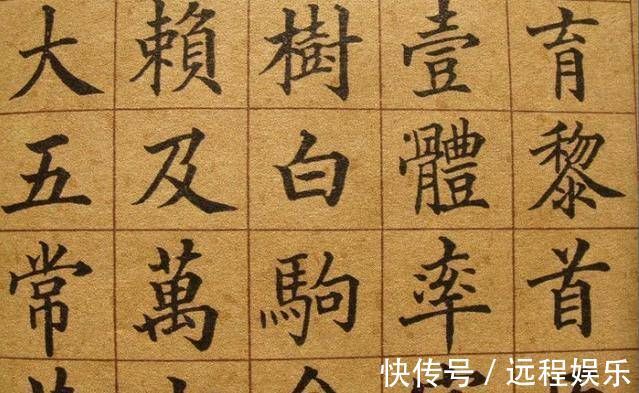 育黎首
壹體率
樹白駒
賴及萬
大五常
快传号 / 远程娱乐